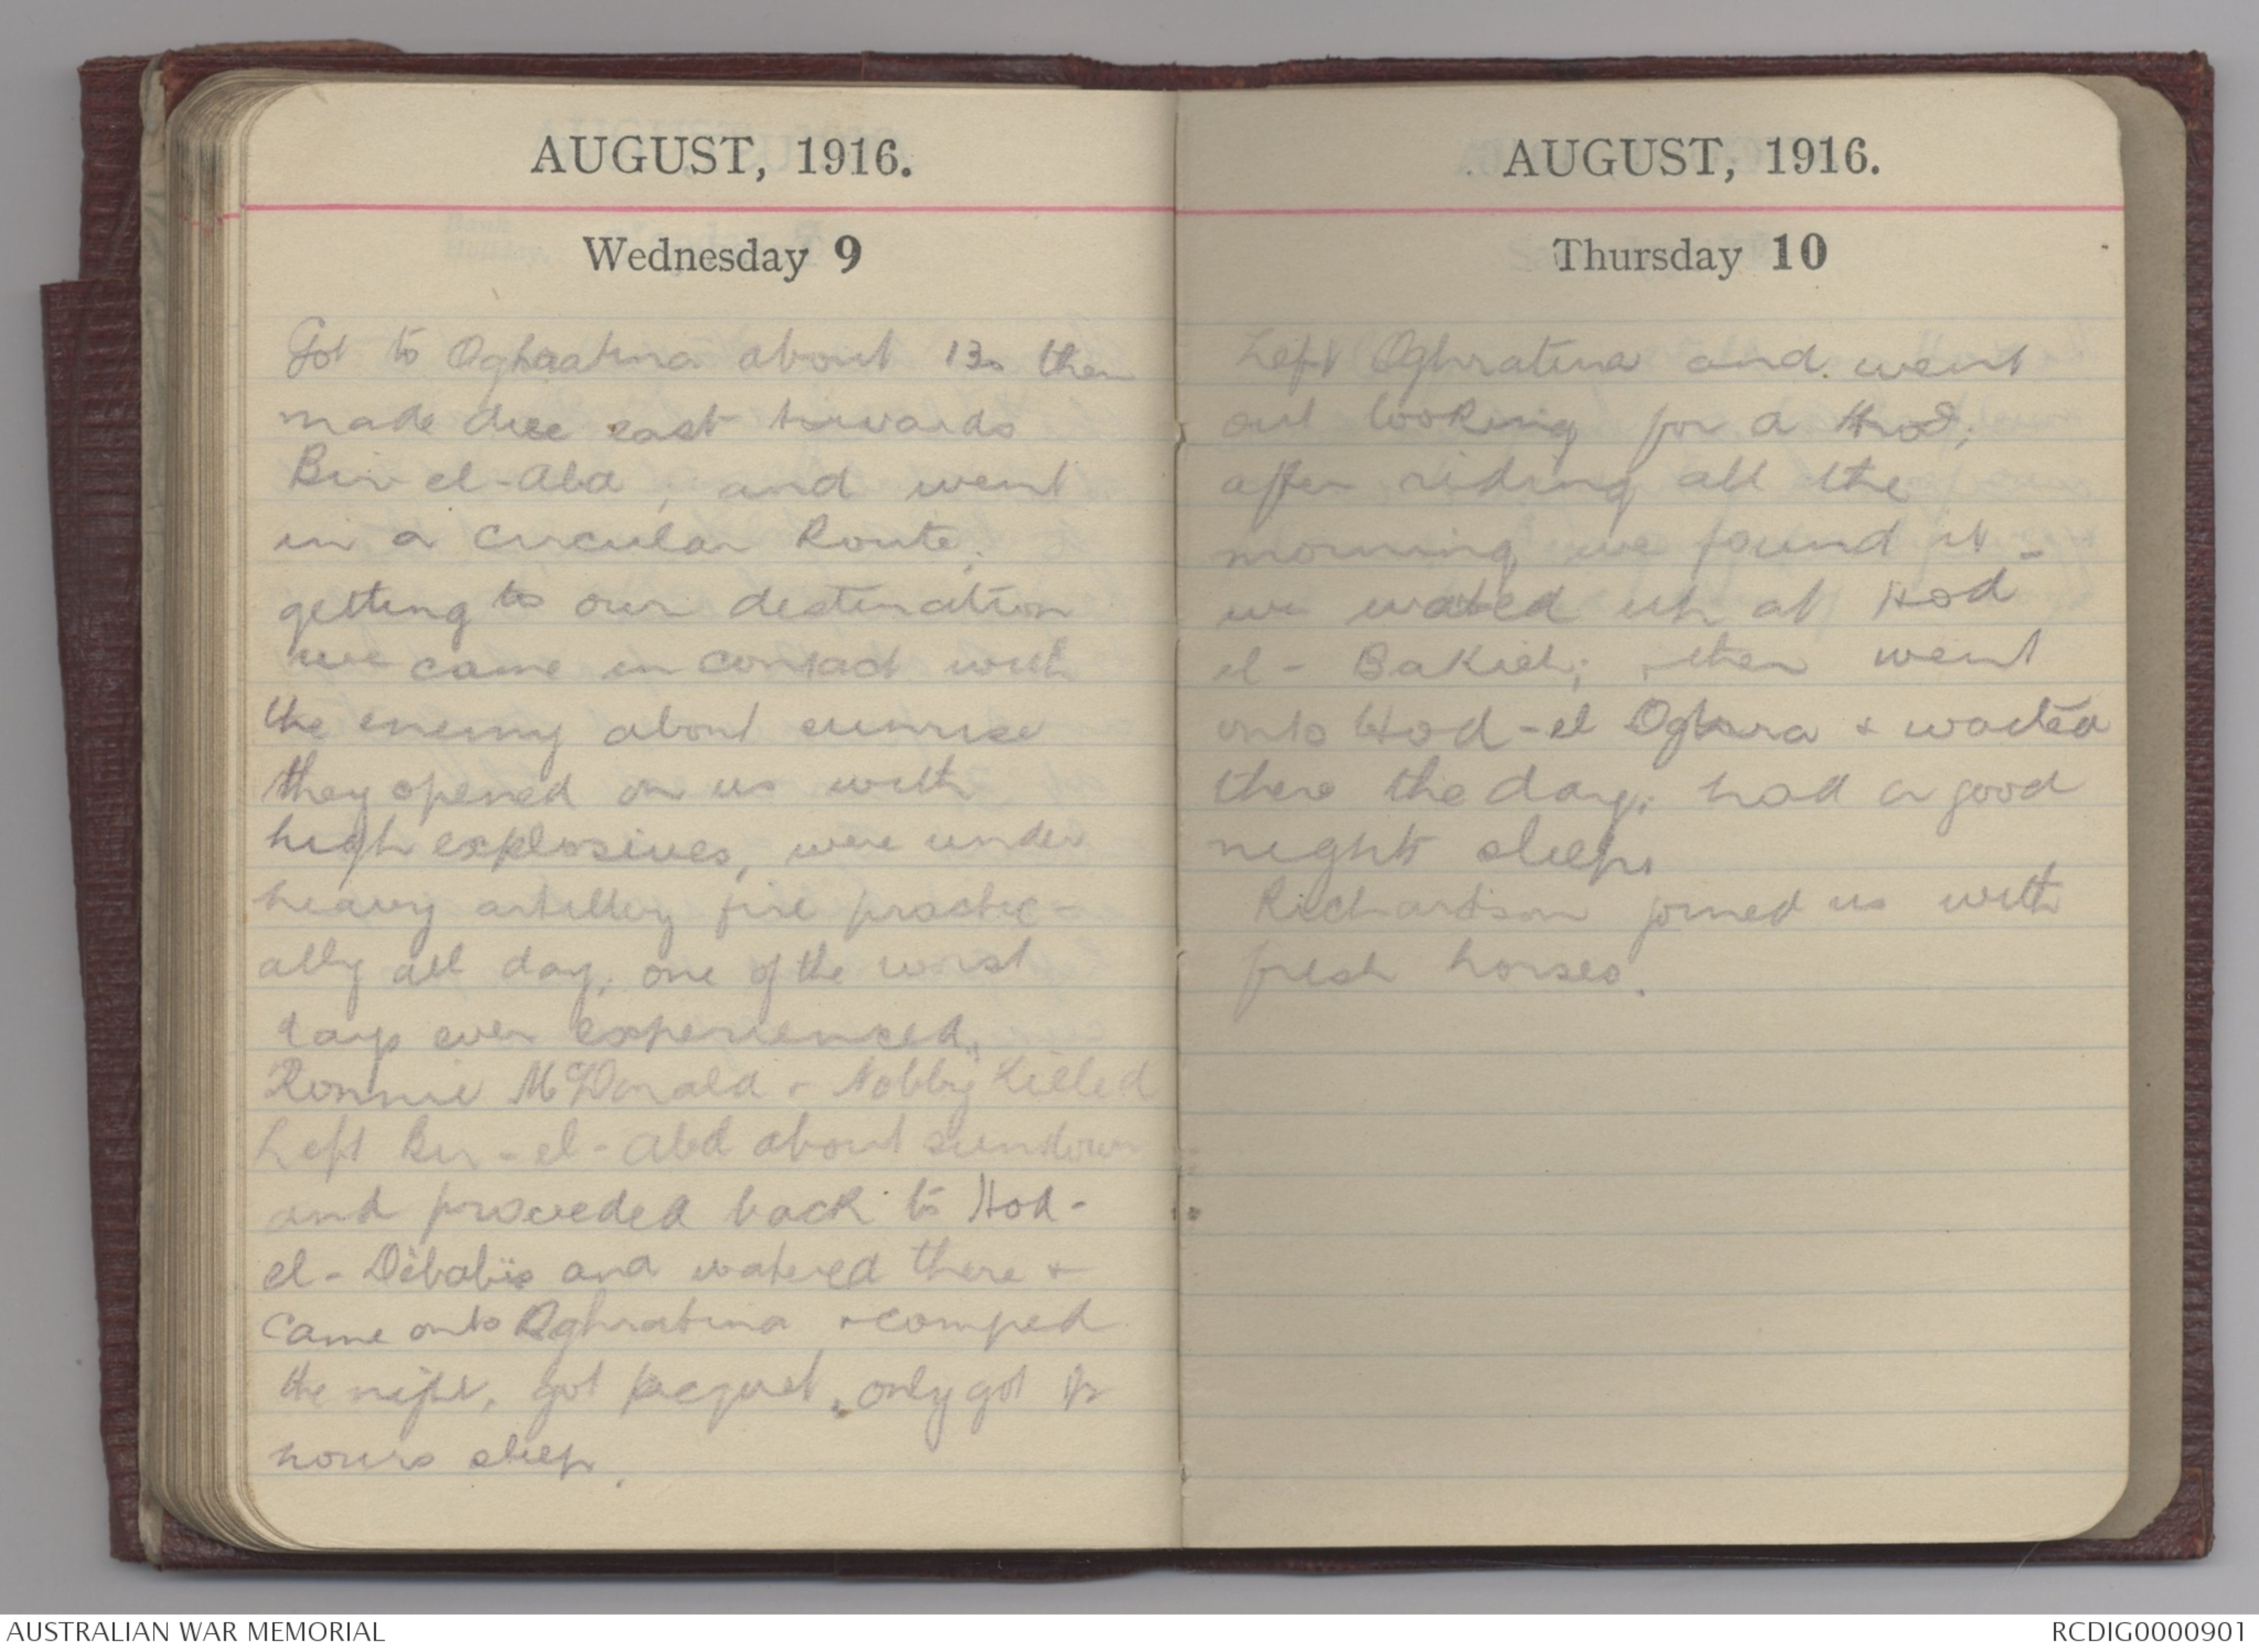 AUGUST, 1916.
Wednesday 9
Got to Oghratina about 130 then
made due east towards
Bir el-Abd, and went
in a circular Route,
getting to our destination
we came in contact with
the enemy about sunrise
they opened on us with
high explosives, were under
heavy artillery fire practic-
ally all day, one of the worst
days ever experienced.
Ronnie McDonald + Nobby Killed
Left Bir-el-Abd about sundown
and proceeded back to Hod-
el-Debabis and watered there +
came onto Oghratina + camped
the night, got picquet, only got
hours sleep.
AUGUST, 1916.
Thursday 10
Left Oghratina and went
out looking for a Hod;
after riding all the
morning we found it -
we up at Hod
el-Bakieh; then went
onto Hod-el Oghra + waited
there the day, had a good
nights sleep.
Richardson joined us with
fresh horses.
AUSTRALIAN WAR MEMORIAL
RCDIG0000901